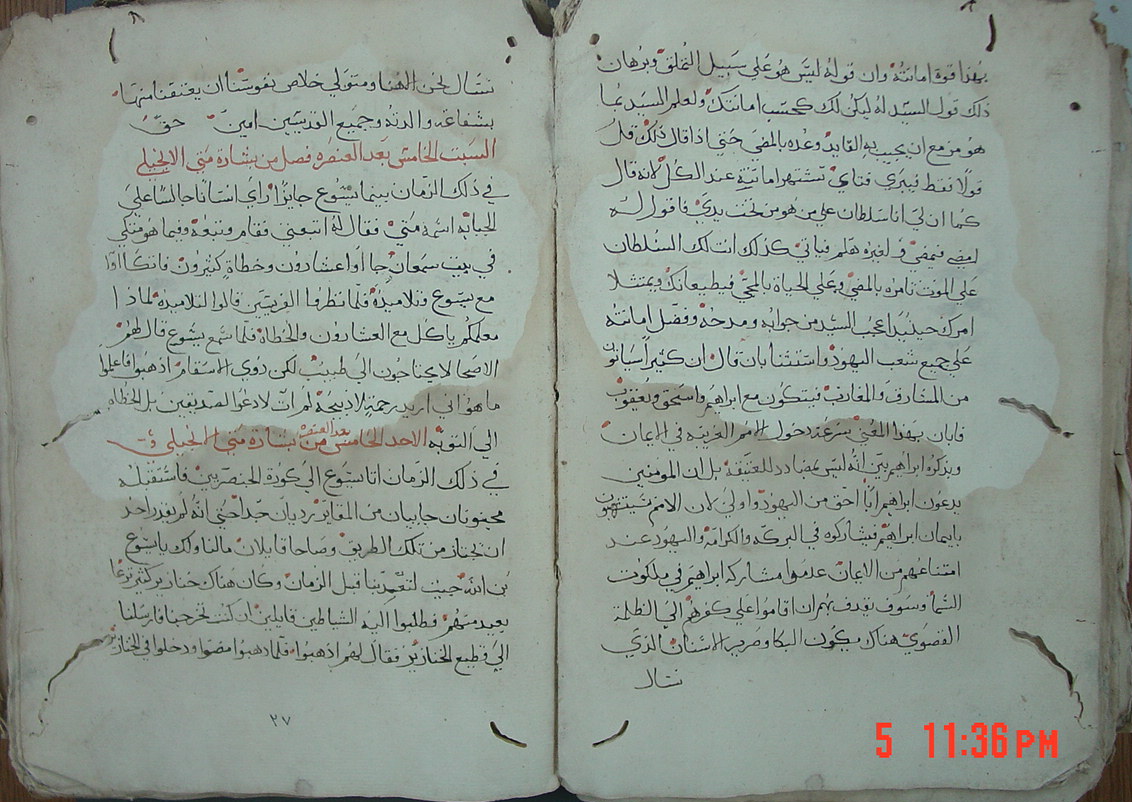 بهذا قوة امانته وان قوله ليس هو على سبيل التملق وبرهان
ذلك قول السيد له ليكن لك كحسب امانتك ولعلم السيد بما
هو مزمع ان يجيب به القايد وعده بالمضي حتي اذا قال ذلك قل
قولا فقط فيبري فتاي تشتهر امانته عند الكل لانه قال
كما ان لي انا سلطان علي من هو من تحت يدي فاقول له
امضي فيمضي ولغيره هلم فياتي كذلك انت لك السلطان
علي الموت تامره بالمضي وعلي الحياة بالمجي فيطيعانك ويمتثلا
امرك حينيذ اعجب السيد من جوابه ومدحه وفضل امانته
علي جميع شعب اليهود واستثنا بان قال ان كثيرا سياتون
من المشارق والمغارب فيتكون مع ابراهيم واسحق ويعقوب
فابان بهذا المعني سرعة دخول الامم الغريبه في الايمان
وبذكره ابراهيم بين انه ليس بمضادد للعتيقه بل ان المومنين
يدعون ابراهيم ابا احق من اليهود واولي لان الامم
بايمان ابراهيم فيشاركوه في البركه والكرامه واليهود عند
امتناعهم من الايمان عدموا مشاركه ابراهيم في ملكوت
السما وسوف يقذف بهم ان اقاموا علي كفرهم الي الظلمة
القصوي هناك يكون البكا وصرير الاسنان الذي
نسال
نسال نحن الهنا ومتولي خلاص نفوسنا ان يعتقنا منها
بشفاعة والدته وجميع القديسين امين حق
السبت الخامس بعد العنصره فصل من بشارة متي الانجيلي
في ذلك الزمان بينما يسوع جايزا راي انسانا جالسا علي
الجبايه اسمه متي فقال له اتبعني فقام وتبعه وفيما هو متكي
في بيت سمعان جا اوا عشارون وخطاة كثيرون فاتكا اوا
مع يسوع وتلاميذه فلما نظر الفريسين قالوا لتلاميذه لماذا
معلمكم ياكل مع العشارون والخطاة فلما سمع يسوع قال لهم
الاصحا لا يحتاجون الي طبيب لكن ذوي الاسقام اذهبوا فاعلموا
ما هو اني اريد رحمة لا ذبيحة لم ات لادعوا الصديقين بل الخطاه
الي التوبه الاحد الخامس بعد العنصره من بشارة متي الانجيلي
في ذلك الزمان اتا يسوع الي كورة الجرجسيين فاستقبله
مجنونان جاييان من المقابر رديان جدا حتي انه لم يقدر احد
ان يجتاز من تلك الطريق وصاحا قايلان مالنا ولك يايسوع
بن الله جيت لتعذبنا قبل الزمان وكان هناك خنازير كثير ترعا
بعيد منهم فطلبوا اليه الشياطين قايلين ان كنت تخرجنا فارسلنا
الي قطيع الخنازير فقال لهم اذهبوا فلما ذهبوا مضوا ودخلوا في الخنازير
٢٧
5 11:36 PM